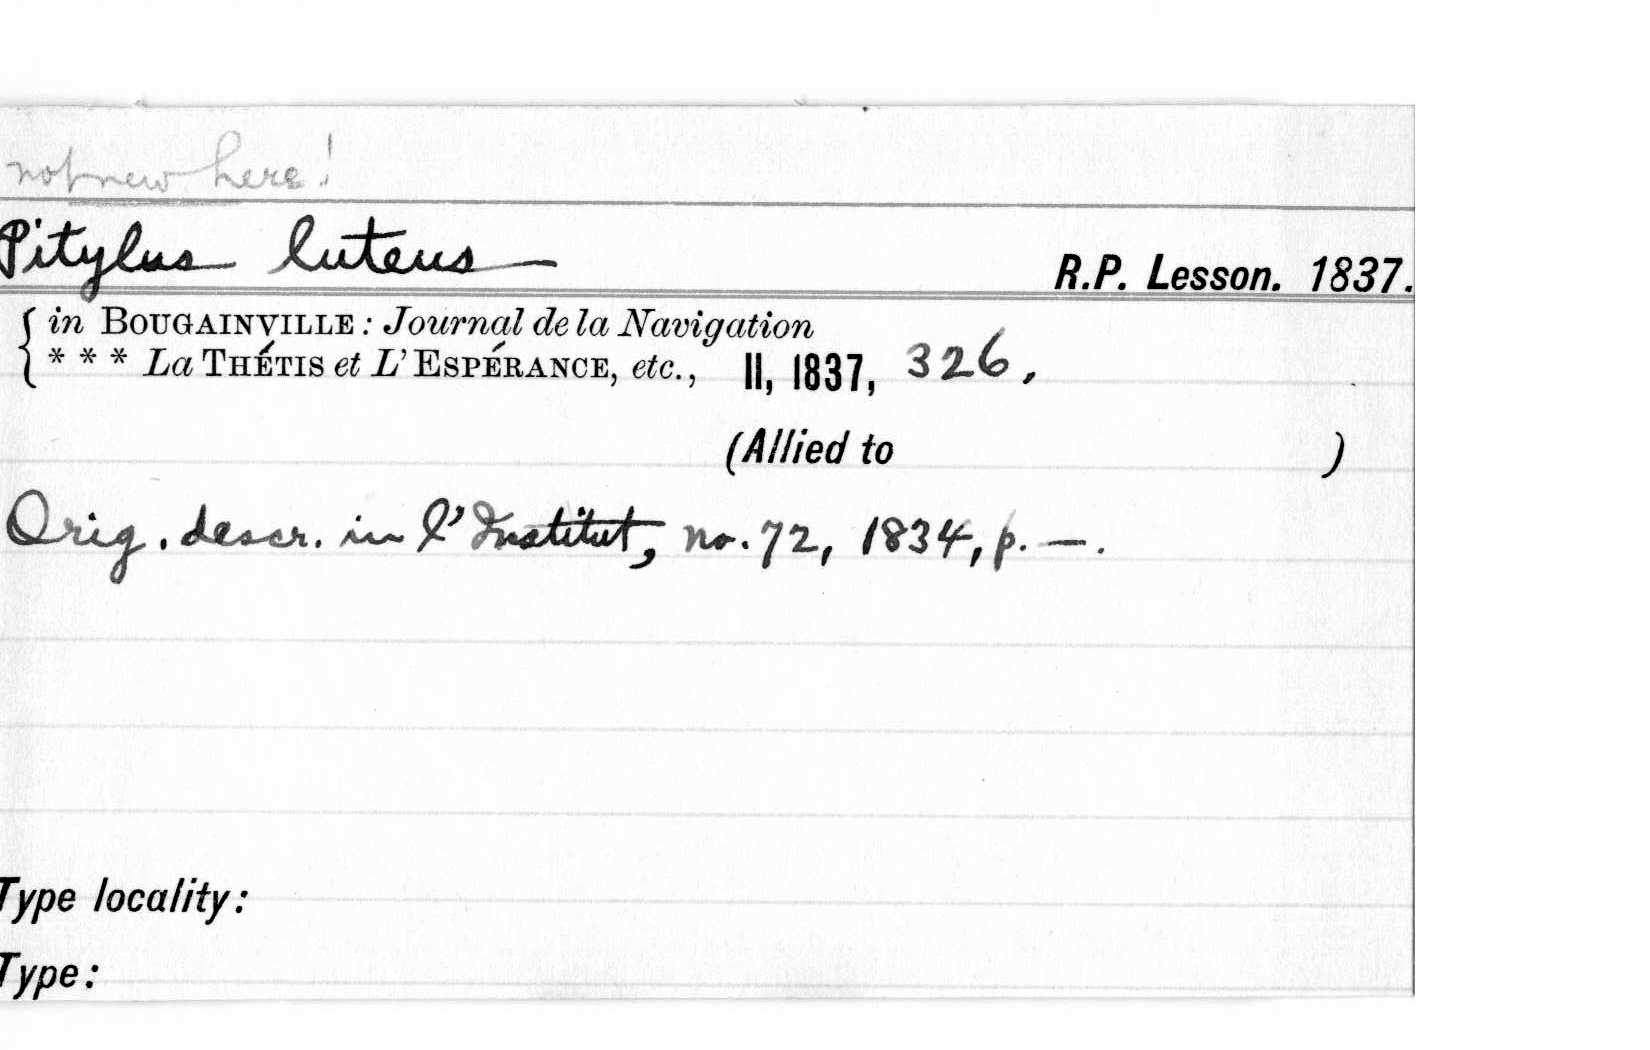 not new here!
Pitylus luteus R.P. Lesson. 1837.
{ in BOUGAINVILLE: Journal de la Navigation
* * * La THÉTIS et L'ESPÉRANCE, etc., II, 1837, 326,
(Allied to )
Orig. descr. in l'Institut, no. 72, 1834, p. —.
Type locality:
Type: